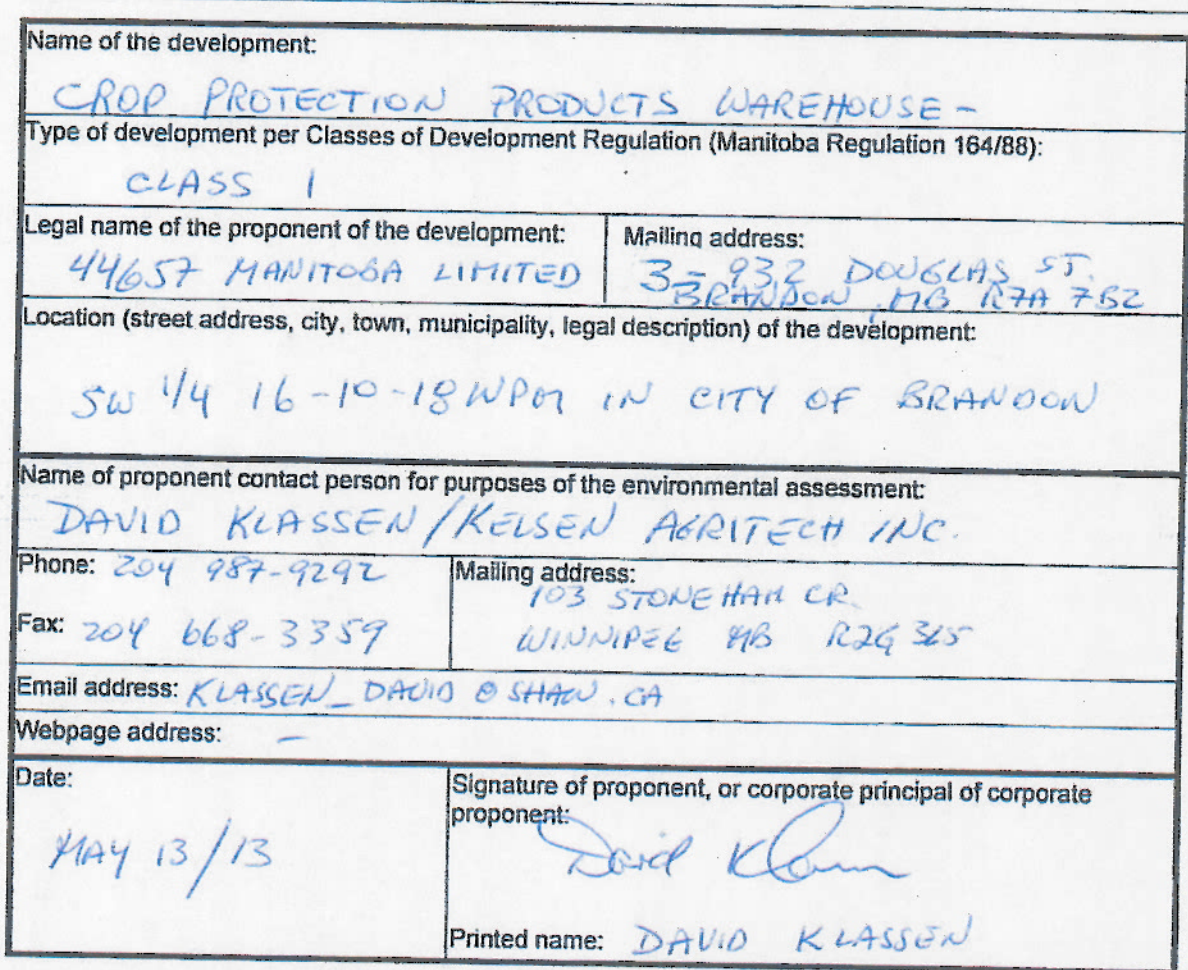 Name of the development:
CROP PROTECTION PRODUCTS WAREHOUSE -
Type of development per Classes of Development Regulation (Manitoba Regulation 164/88):
CLASS 1
Legal name of the proponent of the development:
44657 MANITOBA LIMITED
Mailing address:
3-932 DOUGLAS ST.
BRANDON, MB R7A 7B2
Location (street address, city, town, municipality, legal description) of the development:
SW 1/4 16-10-18 WPM IN CITY OF BRANDON
Name of proponent contact person for purposes of the environmental assessment:
DAVID KLASSEN / KELSEN AGRITECH INC.
Phone: 204 987-9292
Fax: 204 668-3359
Mailing address:
103 STONEHAM CR.
WINNIPEG MB R2G 3L5
Email address: KLASSEN_DAVID @ SHAW.CA
Webpage address: -
Date:
MAY 13/13
Signature of proponent, or corporate principal of corporate
proponent:
David Klassen
Printed name: DAVID KLASSEN